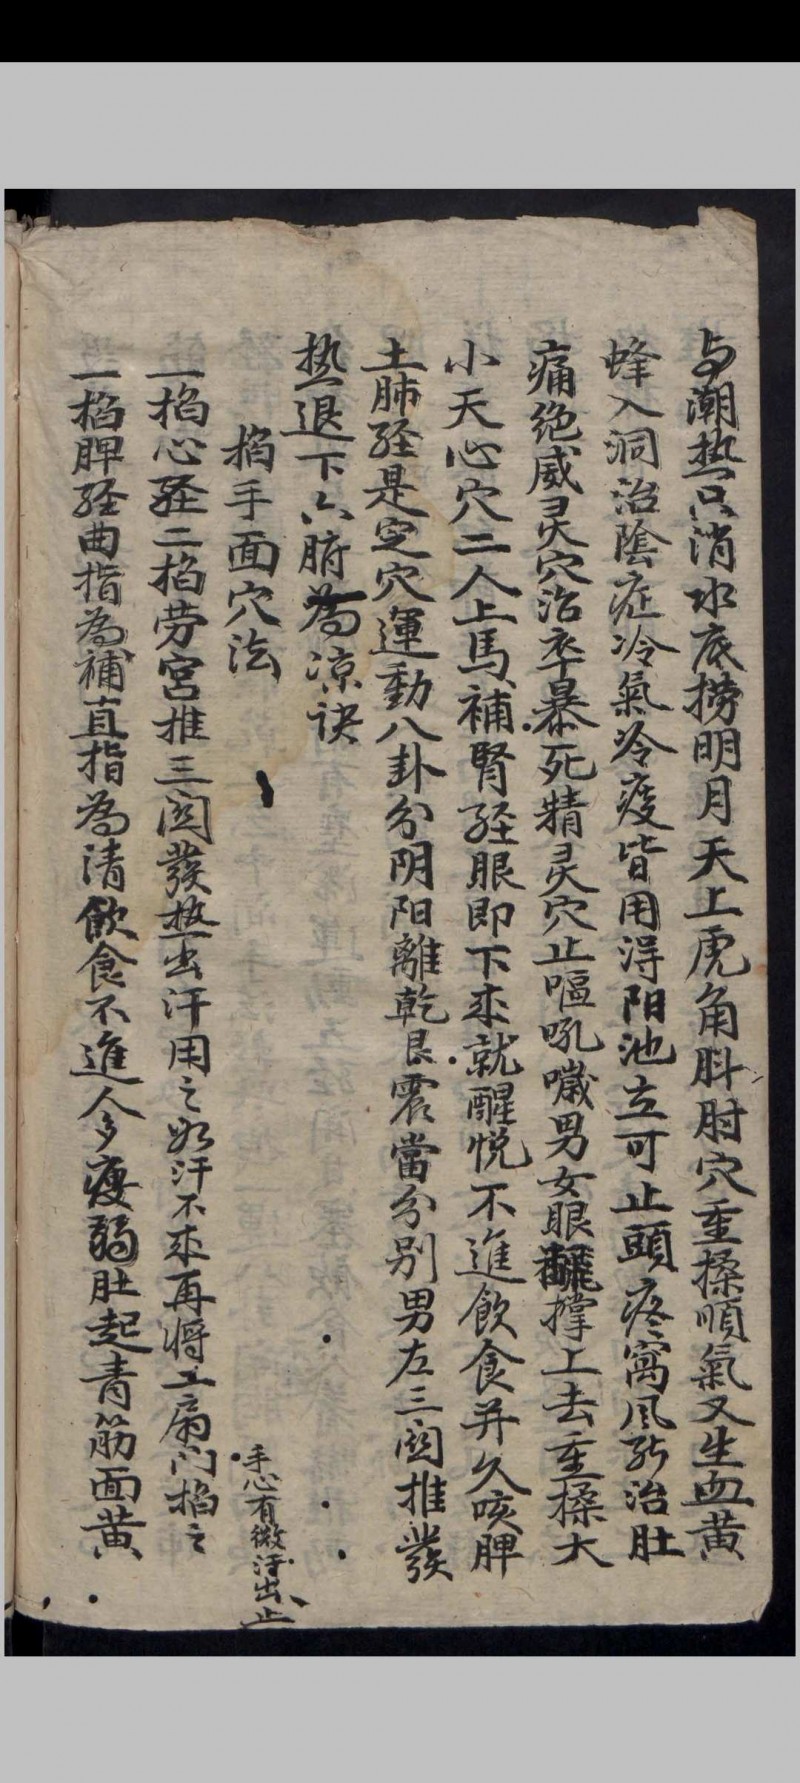 与潮热只消水底捞明月天上虎角䏔肘穴重揉順氣又生血黄
蜂入洞治陰症冷氣冷痰皆用淂阳池立可止頭疼窝风能治肚
痛绝威灵穴治卒暴死精灵穴止嘔吼噦男女眼翻撑上去重揉大
小天心穴二人上馬補腎経眼即下來就醒悦不進飲食并久咳脾
土肺経是定穴運動八卦分阴阳離乾艮震當分别男左三関推發
热退下六腑為凉诀
掐手面穴法
一掐心経二掐劳宫推三関發热出汗用之如汗不來再将二扇门掐之
手心有微汗出止
一掐脾経曲指為補直指為清飲食不進人多瘦弱肚起青筋面黄